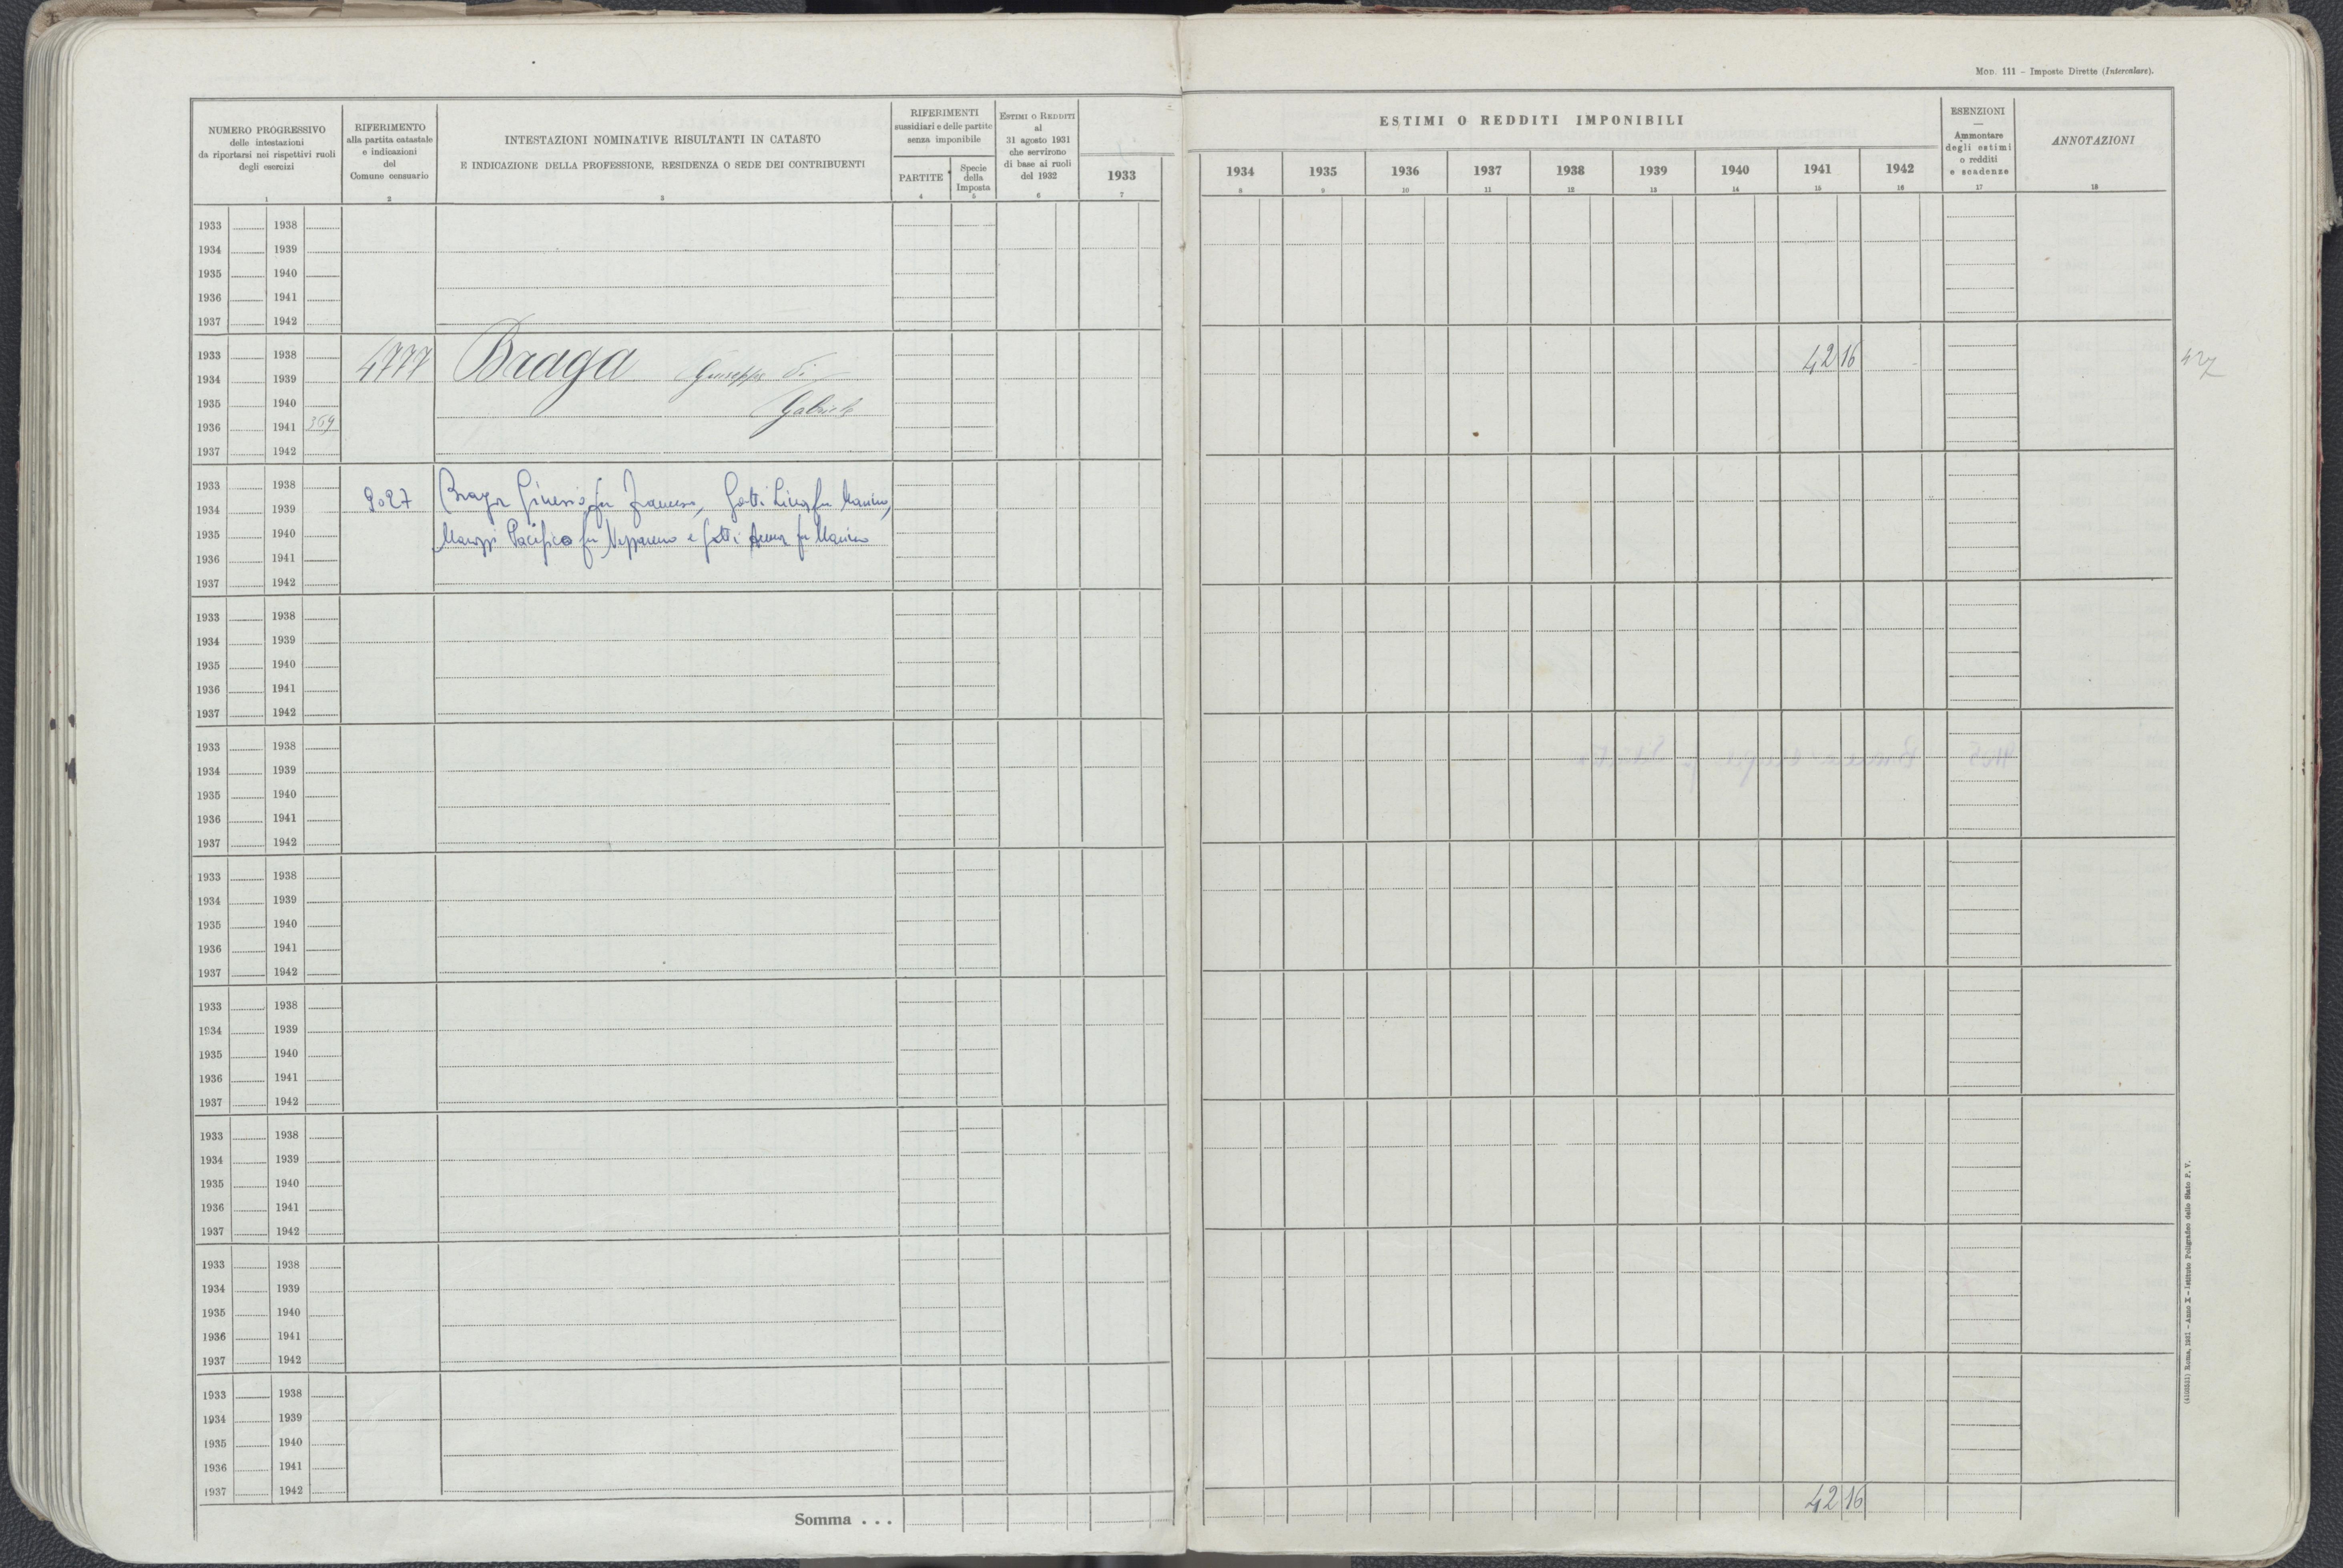 MOD. 111 – Imposte Dirette (Intercalare).
NUMERO PROGRESSIVO
delle intestazioni
da riportarsi nei rispettivi ruoli
degli esercizi
1
RIFERIMENTO
alla partita catastale
e indicazioni
del
Comune censuario
2
INTESTAZIONI NOMINATIVE RISULTANTI IN CATASTO
E INDICAZIONE DELLA PROFESSIONE, RESIDENZA O SEDE DEI CONTRIBUENTI
3
RIFERIMENTI
sussidiari e delle partite
senza imponibile
PARTITE
4
Specie
della
Imposta
5
ESTIMI O REDDITI
al
31 agosto 1931
che servirono
di base ai ruoli
del 1932
6
1933
7
ESTIMI O REDDITI IMPONIBILI
1934 1935 1936 1937 1938 1939 1940 1941 1942
8 9 10 11 12 13 14 15 16
ESENZIONI
—
Ammontare
degli estimi
o redditi
e scadenze
17
ANNOTAZIONI
18
1933 1938
1934 1939
1935 1940
1936 1941
1937 1942
1933 1938
1934 1939 4777 Braga Giuseppe di 42 16
1935 1940 Gabriele
1936 1941 369
1937 1942
1933 1938
1934 1939 9027 Braga Ginesio fu Francesco, Gatti Lina fu Marino,
1935 1940 Pacifico fu e Gatti fu Marino
1936 1941
1937 1942
1933 1938
1934 1939
1935 1940
1936 1941
1937 1942
1933 1938
1934 1939
1935 1940
1936 1941
1937 1942
1933 1938
1934 1939
1935 1940
1936 1941
1937 1942
1933 1938
1934 1939
1935 1940
1936 1941
1937 1942
1933 1938
1934 1939
1935 1940
1936 1941
1937 1942
1933 1938
1934 1939
1935 1940
1936 1941
1937 1942
1933 1938
1934 1939
1935 1940
1936 1941
1937 1942
Somma . . . 42 16
Roma, 1931 – Anno X – Istituto Poligrafico dello Stato P. V.